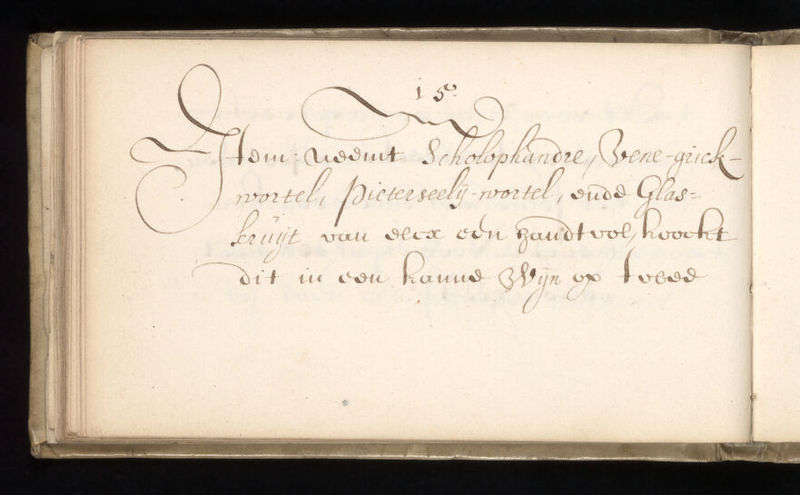 15.
Item neemt Scholophandre, Vene-grick-
wortel, pieterseely-wortel, ende Glas-
kruÿt van elcx een handtvol, koockt
dit in een kanne Wijn op twee